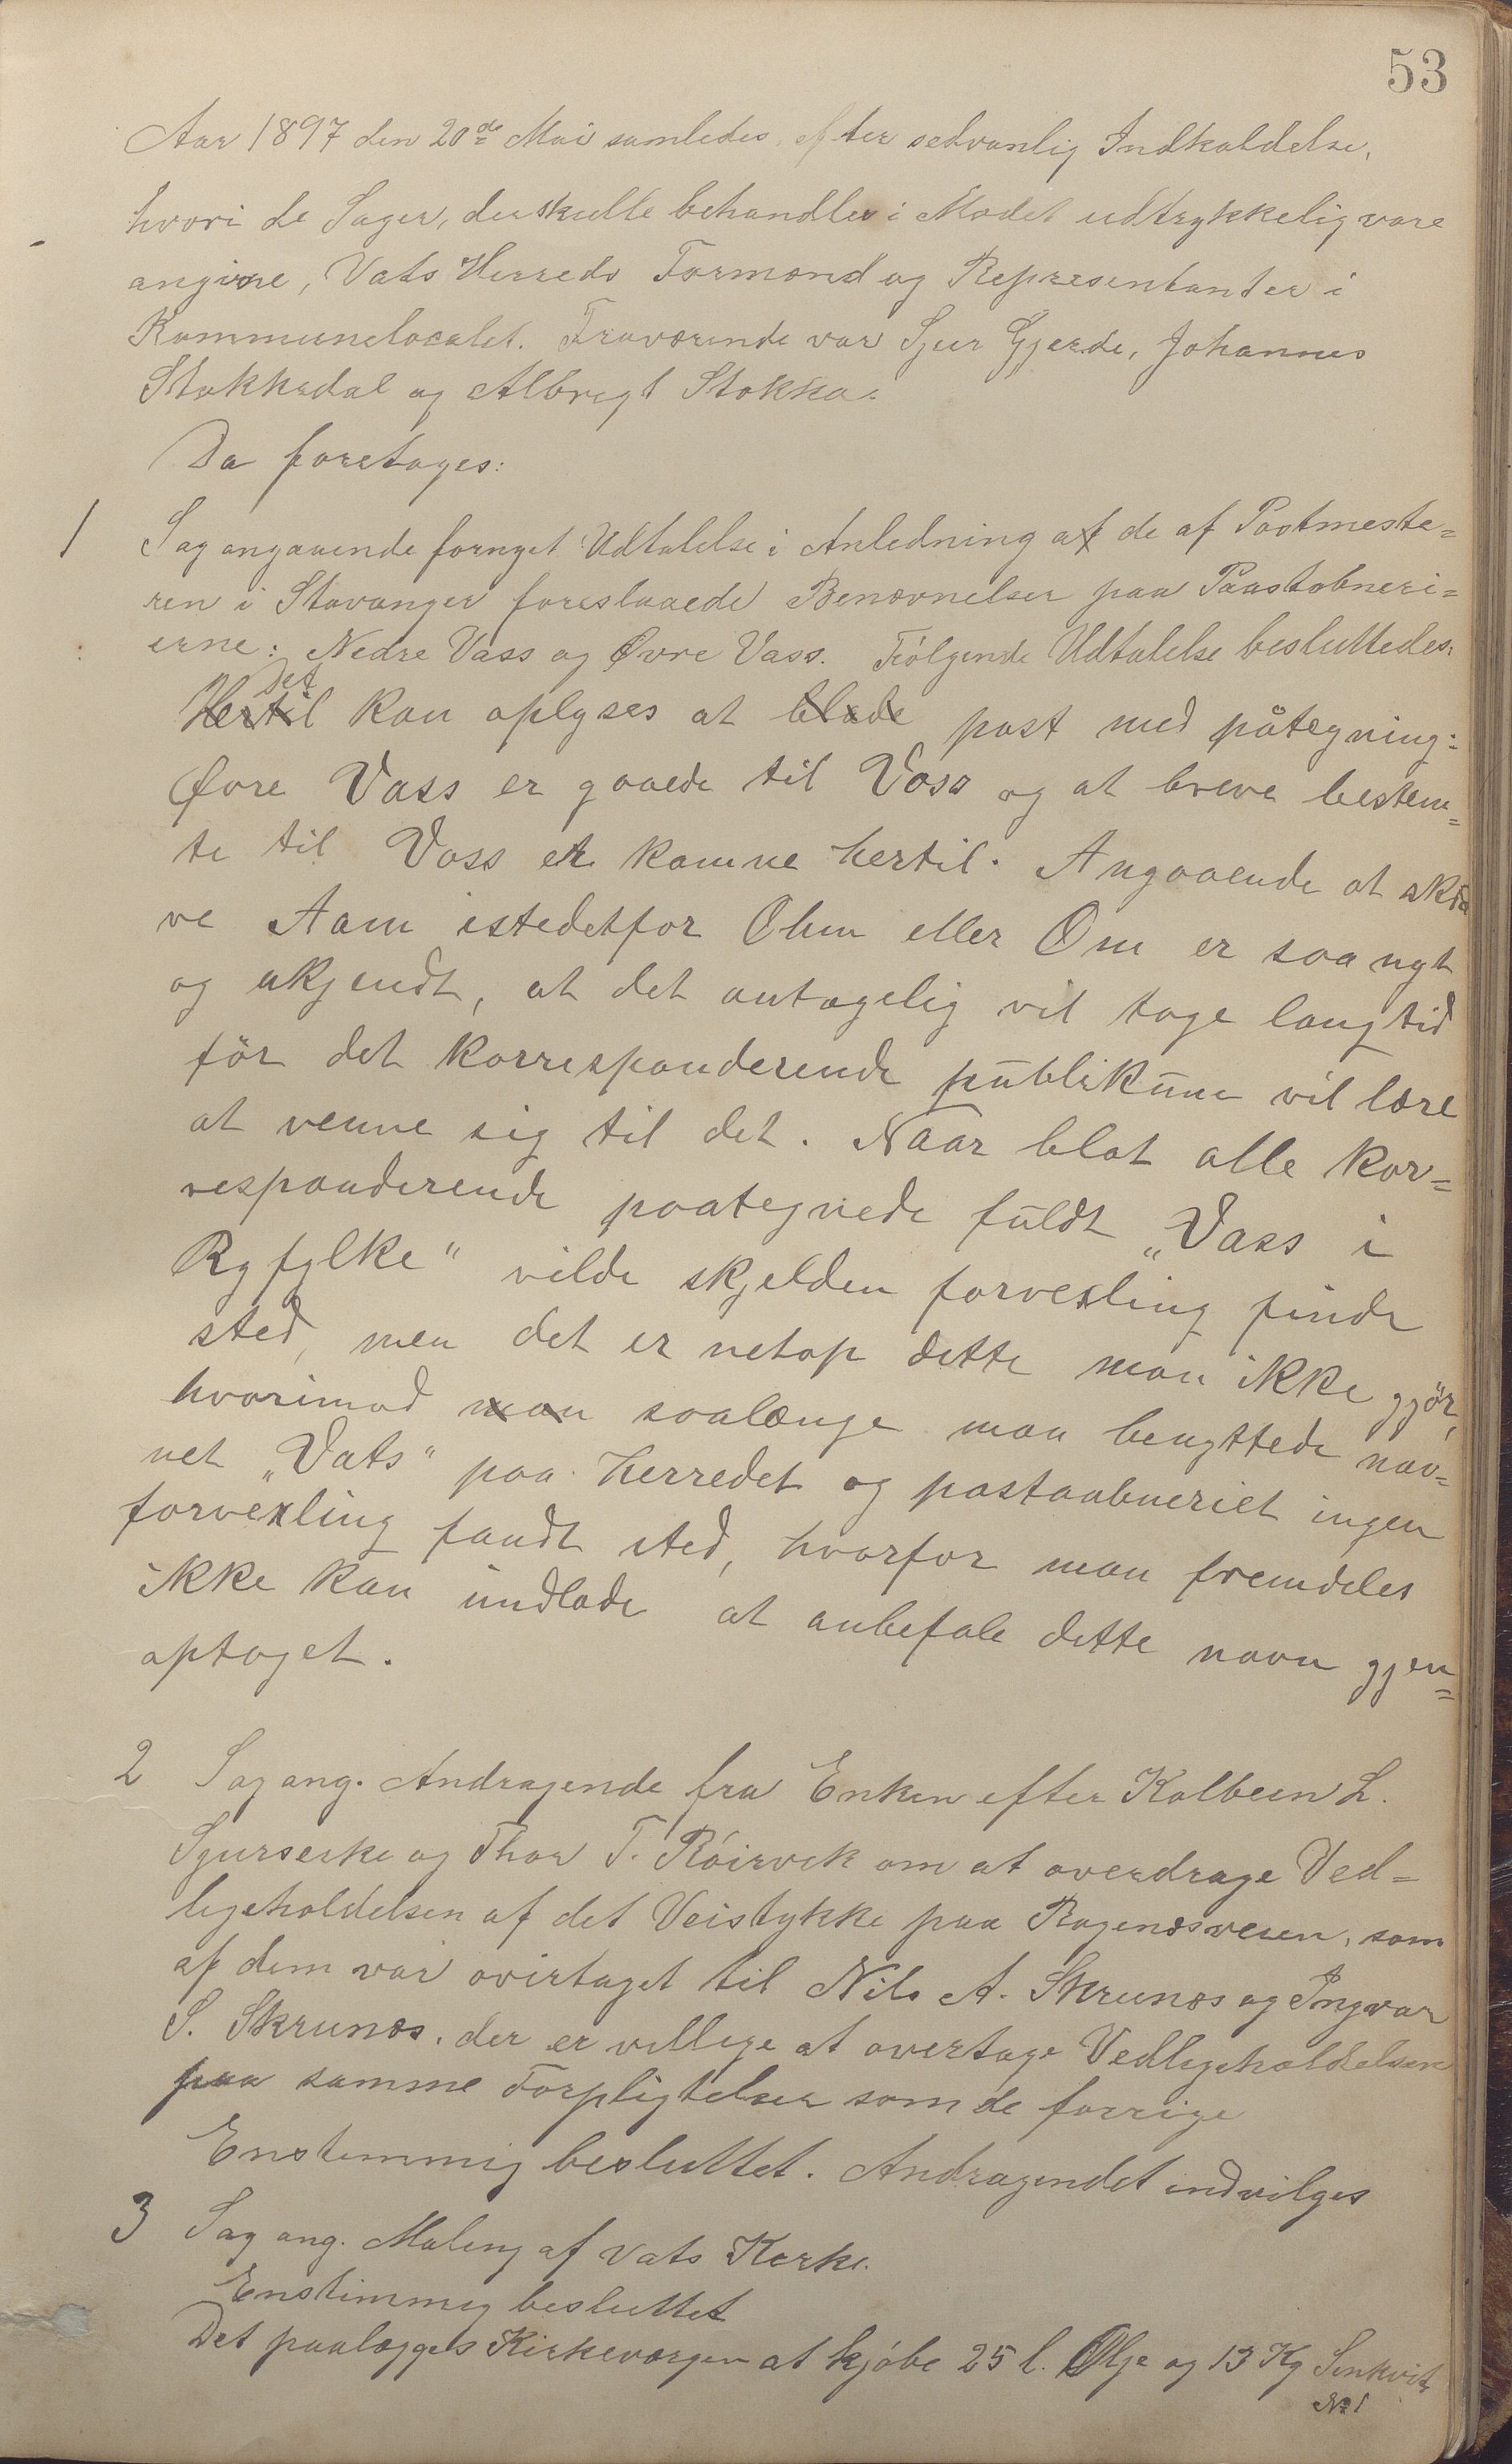 53
Aar 1897 den 20de Mai samledes, efter sedvanlig Indkaldelse,
hvori de Sager, der skulle behandles i Mødet udtrykkelig vare
angivne, Vats Herreds Formænd og Repræsentanter i
Kommunelocalet. Fraværende var Sjur Gjerde, Johannes
Stokkedal og Albregt Stokka.
Da foretoges:
1 Sag angaaende fornyet Udtalelse i Anledning af de af Postmeste=
ren i Stavanger foreslaaede Benævnelser paa Paastobneri=
erne: Nedre Vass og Øvre Vass. Følgende Udtalelse besluttedes:
Det
Hertil kan oplyses at blade post med påtegning:
Øvre Vass er gaaede til Voss og at breve bestem=
te til Voss er komne hertil. Angaaende at skri
ve Aam istedetfor Ohm eller Om er saa nyt
og ukjendt, at det antagelig vil tage lang tid
för det korresponderende publikum vil lære
at venne sig til det. Naar blot alle kor=
responderende paategnede fuldt „Vass i
Ryfylke" vilde skjelden forvexling finde
sted, men det er netop dette man ikke gjör,
hvorimod man saalænge man benyttede nav=
net „Vats" paa herredet og postaabneriet ingen
forvexling fandt sted, hvorfor man fremdeles
ikke kan undlade at anbefale dette navn gjen=
optaget.
2 Sag ang. Andragende fra Enken efter Kolbeen L.
Sjurserke og Thor T. Röirvik om at overdrage Ved=
ligeholdelsen af det Veistykke paa Ragenæsveien, som
af dem var overtaget til Nils A. Skrunæs og Ingvar
S. Skrunæs, der er villige at overtage Vedligeholdelsen
paa samme Forpligtelser som de forrige
Enstemmig besluttet. Andragendet indvilges
3 Sag ang. Maling af Vats Kirke.
Enstimmig besluttet
Det paalægges Kirkeværgen at kjöbe 25 l. Olje og 13 Kg Sinkvit
No 1